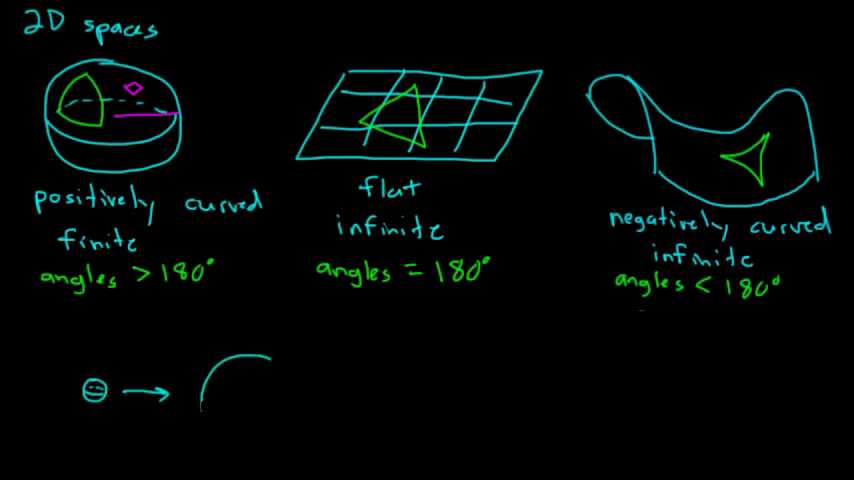 2D spaces
positively curved
finite
angles > 180°
flat
infinite
angles = 180°
negatively curved
infinite
angles < 180°